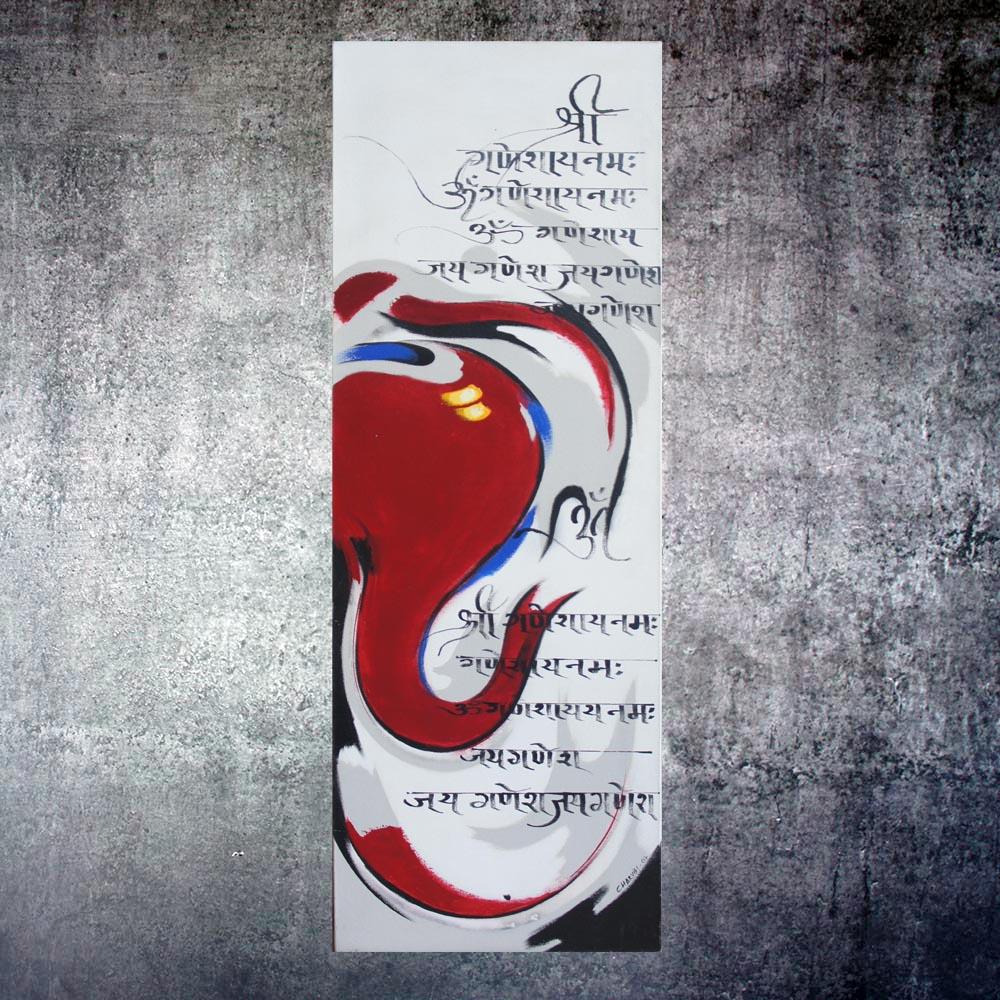 श्री
गणेशायनमः
ॐगणेशायनमः
ॐ गणेशाय
जय गणेश जयगणेश
जयगणेश
ॐ
श्री गणेशायनमः
गणेशायनमः
ॐगणेशाययनमः
जयगणेश
जय गणेशजयगणेश